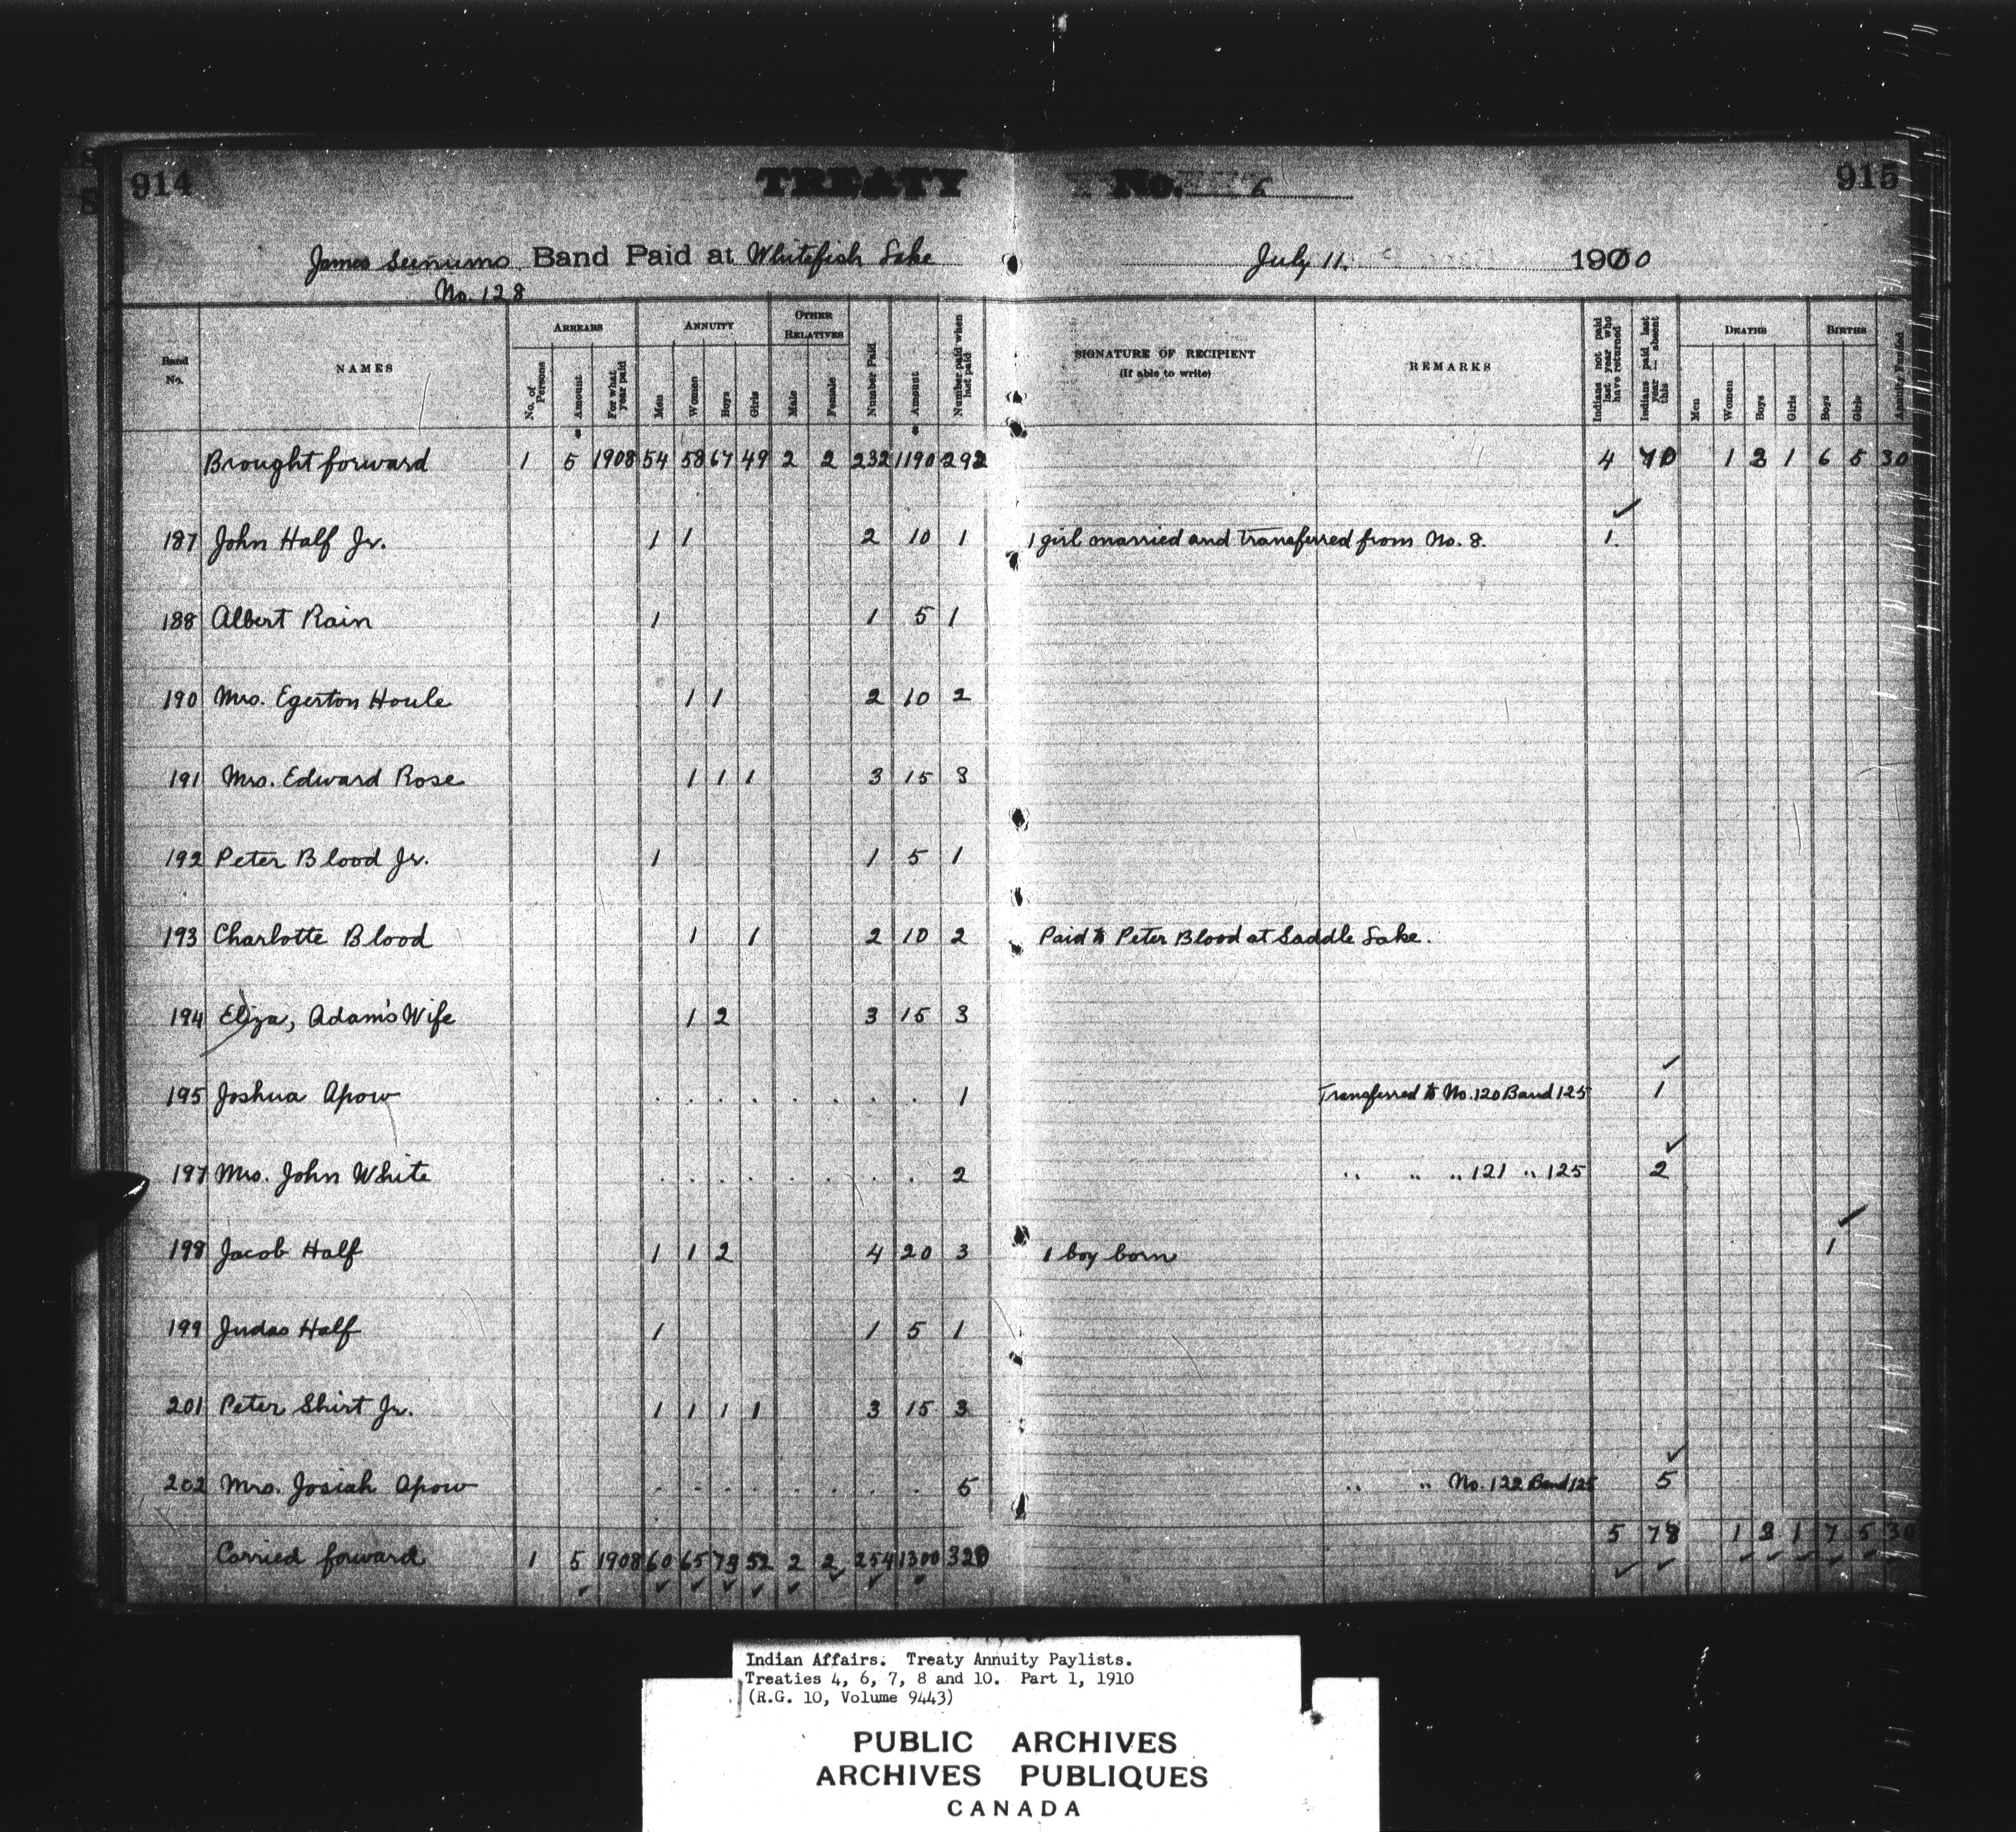 914
TREATY No. 6
915
James Seenums Band Paid at Whitefish Lake July 11. 1900
No. 128
Band No.
NAMES
ARREARS
No. of Persons
Amount
For what year paid
ANNUITY
Men
Women
Boys
Girls
OTHER RELATIVES
Male
Female
Number Paid
Amount
Number paid when last paid
SIGNATURE OF RECIPIENT
(If able to write)
REMARKS
Indians not paid last year who have returned
Indians paid last year absent this
DEATHS
Men
Women
Boys
Girls
BIRTHS
Boys
Girls
Annuity Funded
Brought forward 1 5 1908 54 58 67 49 2 2 232 1190 292 4 70 1 3 1 6 5 30
187 John Half Jr. 1 1 2 10 1 1 girl married and transferred from No. 8. 1
188 Albert Rain 1 1 5 1
190 Mrs. Egerton Houle 1 1 2 10 2
191 Mrs. Edward Rose 1 1 1 3 15 3
192 Peter Blood Jr. 1 1 5 1
193 Charlotte Blood 1 1 2 10 2 Paid to Peter Blood at Saddle Lake.
194 Eliza, Adam's Wife 1 2 3 15 3
195 Joshua Apow . . . . . . . . 1 Transferred to No. 120 Band 125 1
197 Mrs. John White . . . . . . . . 2 " " " 121 " 125 2
198 Jacob Half 1 1 2 4 20 3 1 boy born 1
199 Judas Half 1 1 5 1
201 Peter Shirt Jr. 1 1 1 1 3 15 3
202 Mrs. Josiah Apow . . . . . . . . 5 " " No. 122 Band 125 5
5 78 1 3 1 7 5 30
Carried forward 1 5 1908 60 65 73 52 2 2 254 1300 320
Indian Affairs. Treaty Annuity Paylists.
Treaties 4, 6, 7, 8 and 10. Part 1, 1910
(R.G. 10, Volume 9443)
PUBLIC ARCHIVES
ARCHIVES PUBLIQUES
CANADA